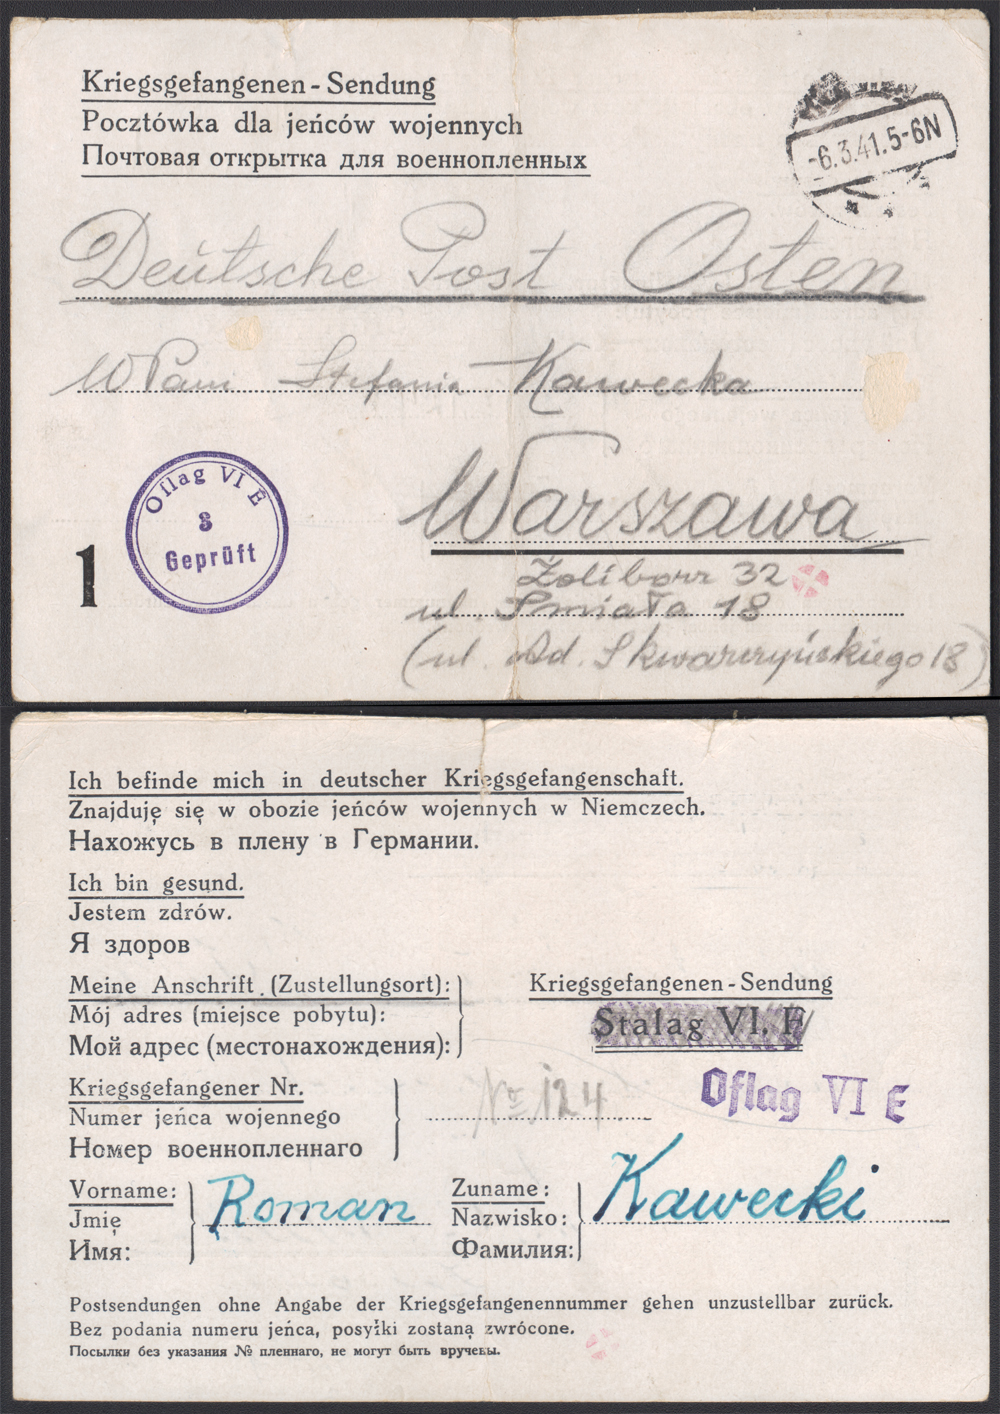 Kriegsgefangenen - Sendung
Pocztówka dla jeńców wojennych
Почтовая открытка для военнопленных
-6.3.41.5-6N
Deutsche Post Osten
WPani Stefania Kawecka
Warszawa
Oflag VI E
3
Geprüft
1
Żoliborz 32
ul. Śmiała 18
(ul. Ad. Skwarczyńskiego 18)
Ich befinde mich in deutscher Kriegsgefangenschaft.
Znajduję się w obozie jeńców wojennych w Niemczech.
Нахожусь в плену в Германии.
Ich bin gesund.
Jestem zdrów.
Я здоров
Meine Anschrift (Zustellungsort):
Mój adres (miejsce pobytu):
Мой адрес (местонахождения):
Kriegsgefangenen - Sendung
Stalag VI. F
Oflag VI E
Kriegsgefangener Nr.
Numer jeńca wojennego
Номер военнопленнаго
No 124
Vorname: Roman Zuname: Kawecki
Jmię Nazwisko:
Имя: Фамилия:
Postsendungen ohne Angabe der Kriegsgefangenennummer gehen unzustellbar zurück.
Bez podania numeru jeńca, posyłki zostaną zwrócone.
Посылки без указания № пленнаго, не могут быть вручены.